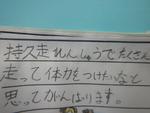 持久走れんしゅうでたくさん
走って体力をつけたいなと
思ってがんばります。